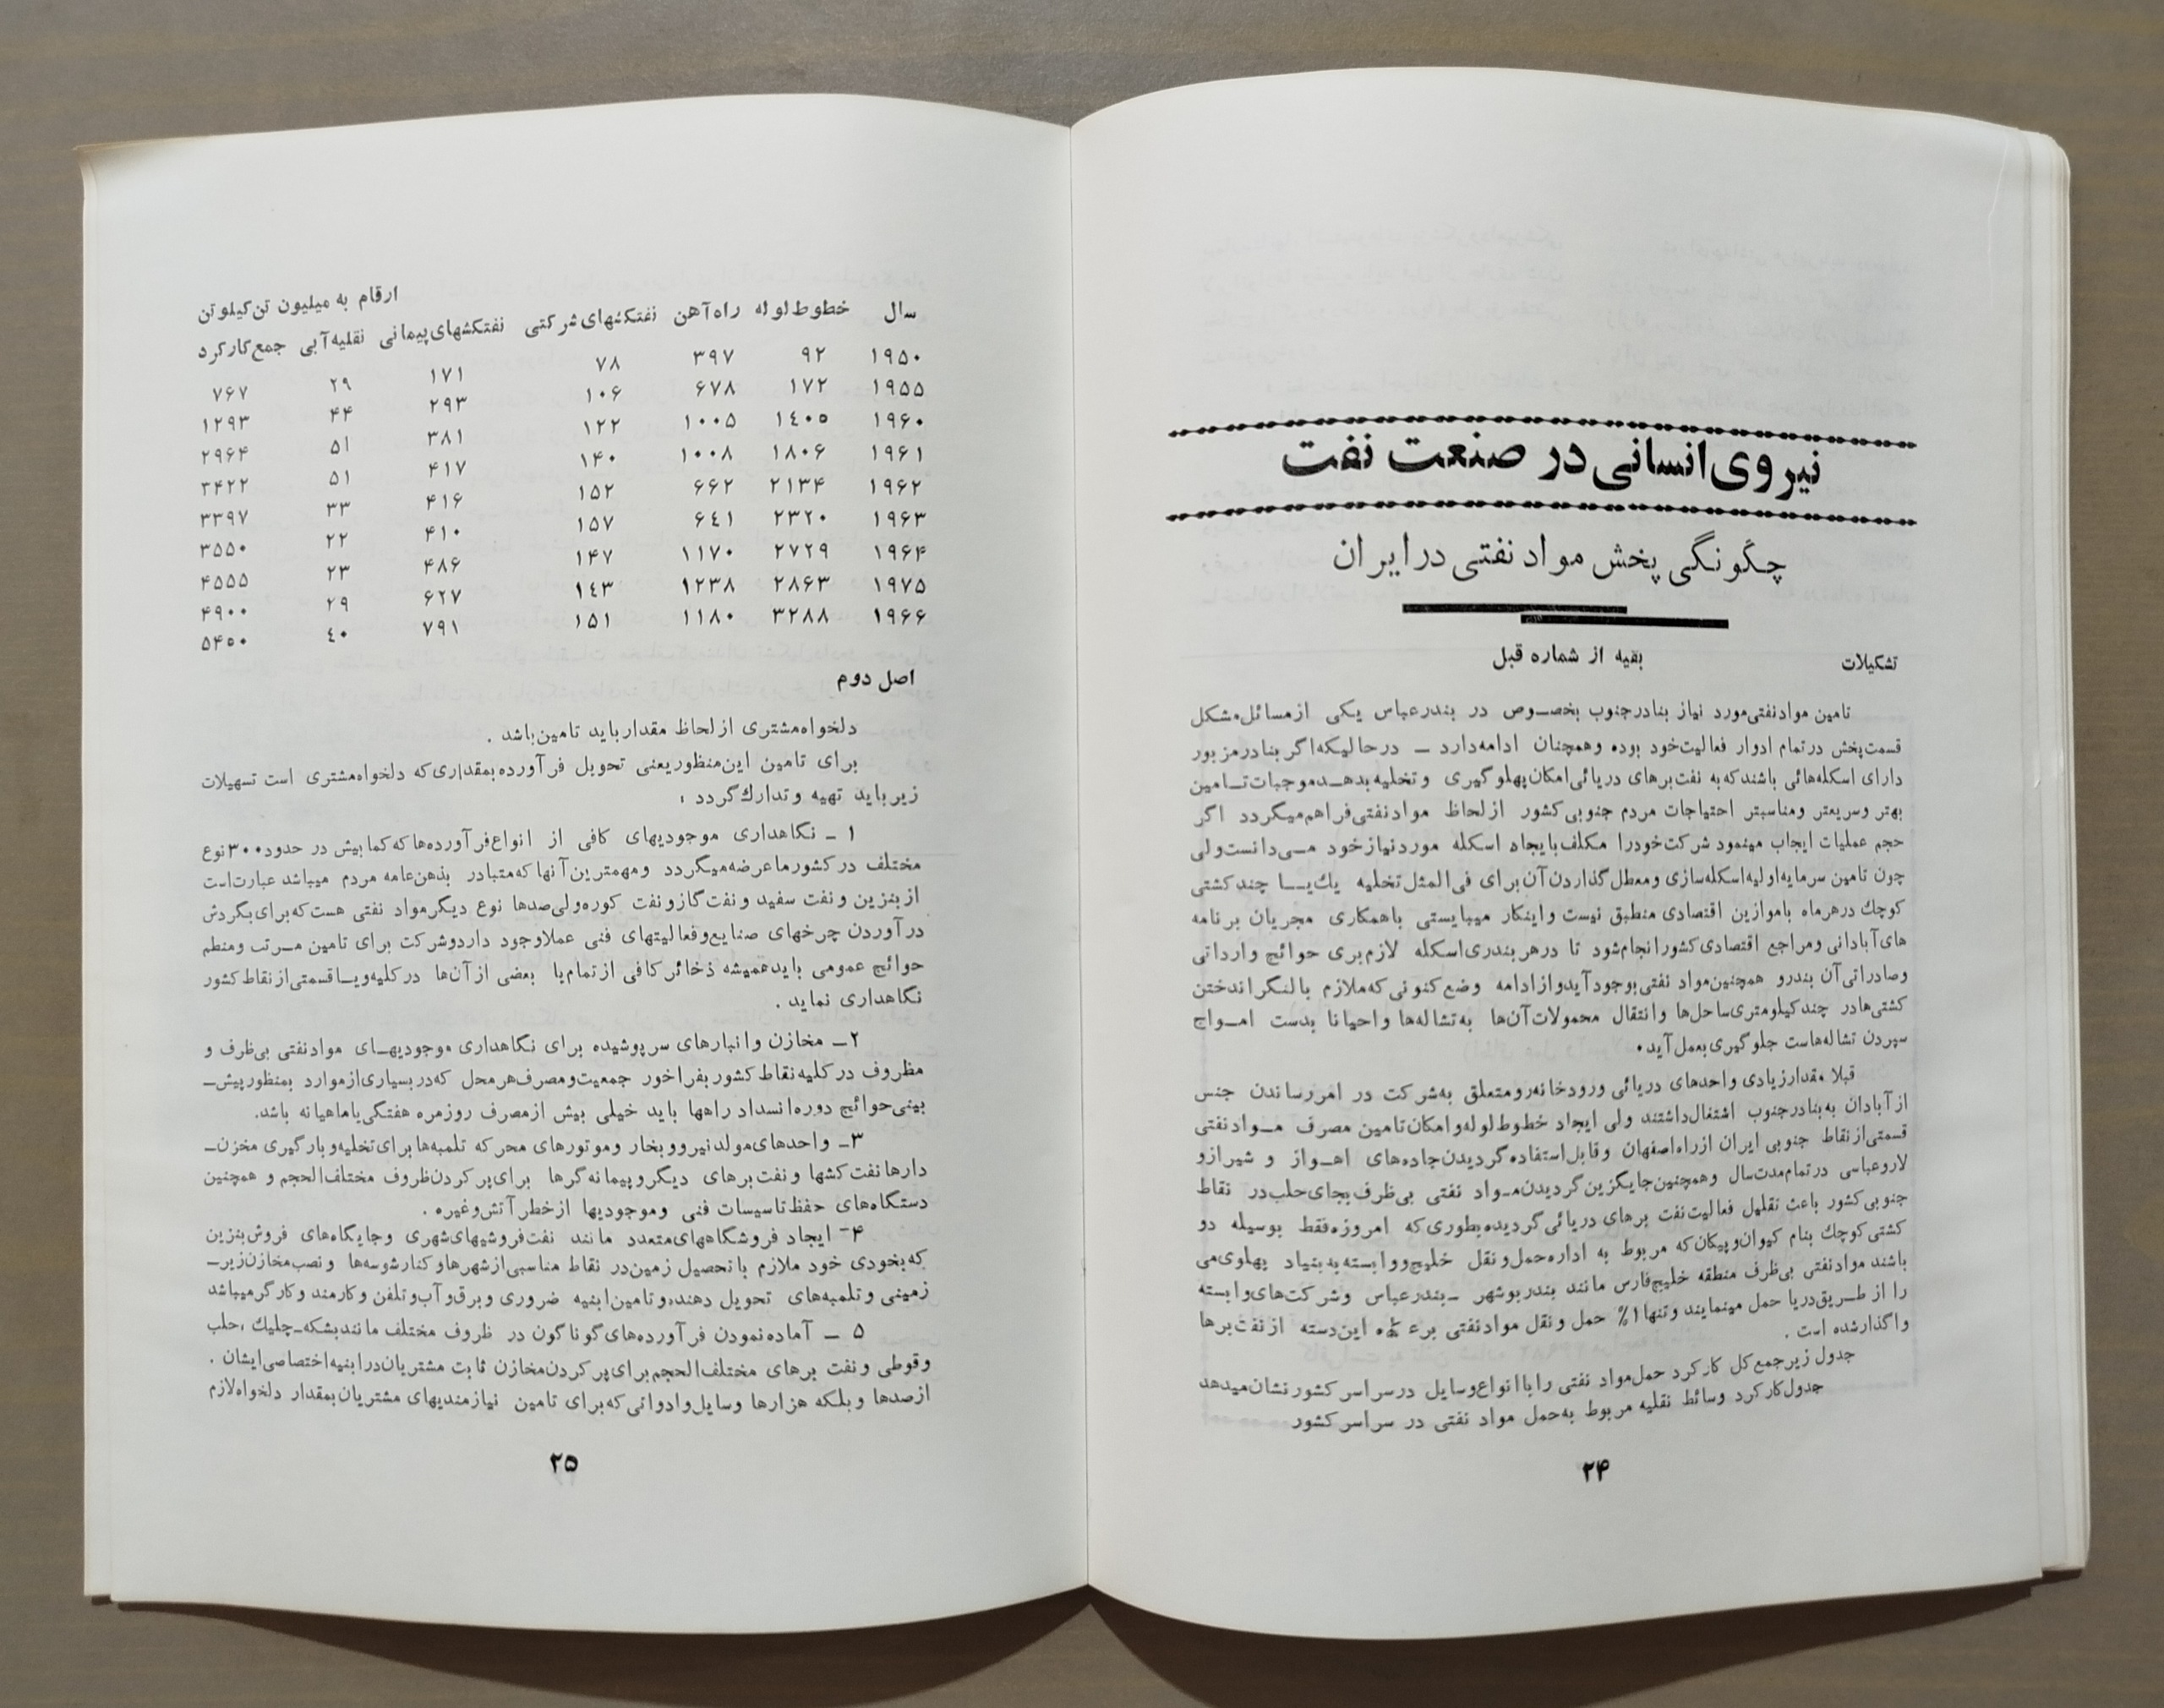 نیروی انسانی در صنعت نفت
چگونگی پخش مواد نفتی در ایران
بقیه از شماره قبل
تشکیلات
تامین مواد نفتی مورد نیاز بنادر جنوب بخصـوص در بندرعباس یکی از مسائل مشکل
قسمت پخش در تمام ادوار فعالیت خود بوده و همچنان ادامه دارد ـ در حالیکه اگر بنادر مزبور
دارای اسکله‌هائی باشند که به نفت‌برهای دریائی امکان پهلوگیری و تخلیه بدهـد موجبات تـامین
بهتر و سریعتر و مناسبتر احتیاجات مردم جنوبی کشور از لحاظ مواد نفتی فراهم میگردد اگر
حجم عملیات ایجاب مینمود شرکت خود را مکلف بایجاد اسکله مورد نیاز خود مـی‌دانست ولی
چون تامین سرمایه اولیه اسکله سازی و معطل گذاردن آن برای فی‌المثل تخلیه یك یـا چند کشتی
کوچك در هر ماه با موازین اقتصادی منطبق نیست و اینکار میبایستی با همکاری مجریان برنامه
های آبادانی و مراجع اقتصادی کشور انجام شود تا در هر بندری اسکله لازم بری حوائج وارداتی
و صادراتی آن بندر و همچنین مواد نفتی بوجود آید و از ادامه وضع کنونی که ملازم با لنگر انداختن
کشتی‌ها در چند کیلومتری ساحل‌ها و انتقال محمولات آن‌ها به تشاله‌ها و احیانا بدست امـواج
سپردن تشاله‌هاست جلوگیری بعمل آید.
قبلا مقدار زیادی واحدهای دریائی ورودخانه‌رو متعلق به شرکت در امر رساندن جنس
از آبادان به بنادر جنوب اشتغال داشتند ولی ایجاد خطوط لوله و امکان تامین مصرف مـواد نفتی
قسمتی از نقاط جنوبی ایران از راه اصفهان و قابل استفاده گردیدن جاده‌های اهـواز و شیراز و
لار و عباسی در تمام مدت سال و همچنین جایگزین گردیدن مـواد نفتی بی‌ظرف بجای حلب در نقاط
جنوبی کشور باعث تقلیل فعالیت نفت برهای دریائی گردیده بطوری که امروزه فقط بوسیله دو
کشتی کوچك بنام کیوان و پیکان که مربوط به اداره حمل و نقل خلیج و وابسته به بنیاد پهلوی می
باشند مواد نفتی بی‌ظرف منطقه خلیج فارس مانند بندر بوشهر ـ بندرعباس و شرکت‌های وابسته
را از طـریق دریا حمل مینمایند و تنها ۱% حمل و نقل مواد نفتی این دسته از نفت برها
واگذار شده است .
جدول زیر جمع کل کارکرد حمل مواد نفتی را با انواع وسایل در سراسر کشور نشان میدهد
جدول کارکرد وسائط نقلیه مربوط به حمل مواد نفتی در سراسر کشور
۲۴
ارقام به میلیون تن کیلو تن
سال خطوط لوله راه آهن نفتکشهای شرکتی نفتکشهای پیمانی نقلیه آبی جمع کارکرد
۱۹۵۰ ۹۲ ۳۹۷ ۷۸ ۱۷۱ ۲۹ ۷۶۷
۱۹۵۵ ۱۷۲ ۶۷۸ ۱۰۶ ۲۹۳ ۴۴ ۱۲۹۳
۱۹۶۰ ۱٤۰۵ ۱۰۰۵ ۱۲۲ ۳۸۱ ۵۱ ۲۹۶۴
۱۹۶۱ ۱۸۰۶ ۱۰۰۸ ۱۴۰ ۴۱۷ ۵۱ ۳۴۲۲
۱۹۶۲ ۲۱۳۴ ۶۶۲ ۱۵۲ ۴۱۶ ۳۳ ۳۳۹۷
۱۹۶۳ ۲۳۲۰ ۶٤۱ ۱۵۷ ۴۱۰ ۲۲ ۳۵۵۰
۱۹۶۴ ۲۷۲۹ ۱۱۷۰ ۱۴۷ ۴۸۶ ۲۳ ۴۵۵۵
۱۹۷۵ ۲۸۶۳ ۱۲۳۸ ۱٤۳ ۶۲۷ ۲۹ ۴۹۰۰
۱۹۶۶ ۳۲۸۸ ۱۱۸۰ ۱۵۱ ۷۹۱ ٤۰ ۵۴۵۰
اصل دوم
دلخواه مشتری از لحاظ مقدار باید تامین باشد .
برای تامین این منظور یعنی تحویل فرآورده بمقداری که دلخواه مشتری است تسهیلات
زیر باید تهیه و تدارك گردد :
۱ ـ نگاهداری موجودیهای کافی از انواع فرآورده‌ها که کما بیش در حدود ۳۰۰ نوع
مختلف در کشور ما عرضه میگردد و مهمترین آنها که متبادر بذهن عامه مردم میباشد عبارت است
از بنزین و نفت سفید و نفت گاز و نفت کوره ولی صدها نوع دیگر مواد نفتی هست که برای بگردش
در آوردن چرخهای صنایع و فعالیتهای فنی عملا وجود دارد و شرکت برای تامین مـرتب و منظم
حوائج عمومی باید همیشه ذخائر کافی از تمام یا بعضی از آن‌ها در کلیه و یـا قسمتی از نقاط کشور
نگاهداری نماید .
۲ـ مخازن و انبارهای سرپوشیده برای نگاهداری موجودیهـای مواد نفتی بی‌ظرف و
مظروف در کلیه نقاط کشور بفراخور جمعیت و مصرف هر محل که در بسیاری از موارد بمنظور پیش ـ
بینی حوائج دوره انسداد راهها باید خیلی بیش از مصرف روزمره هفتگی یا ماهیانه باشد.
۳ـ واحدهای مولد نیرو و بخار و موتورهای محرکه تلمبه‌ها برای تخلیه و بارگیری مخزن ـ
دارها نفت کشها و نفت برهای دیگر و پیمانه گرها برای پر کردن ظروف مختلف الحجم و همچنین
دستگاه‌های حفظ تاسیسات فنی و موجودیها از خطر آتش و غیره .
۴- ایجاد فروشگاههای متعدد مانند نفت فروشیهای شهری و جایگاه‌های فروش بنزین
که بخودی خود ملازم با تحصیل زمین در نقاط مناسبی از شهرها و کنار شوسه‌ها و نصب مخازن زیر ـ
زمینی و تلمبه‌های تحویل دهنده و تامین ابنیه ضروری و برق و آب و تلفن و کارمند و کارگر میباشد
۵ ـ آماده نمودن فرآورده‌های گوناگون در ظروف مختلف مانند بشکه ـ چلیك ، حلب
و قوطی و نفت برهای مختلف الحجم برای پر کردن مخازن ثابت مشتریان در ابنیه اختصاصی ایشان .
از صدها و بلکه هزارها وسایل و ادواتی که برای تامین نیازمندیهای مشتریان بمقدار دلخواه لازم
۲۵